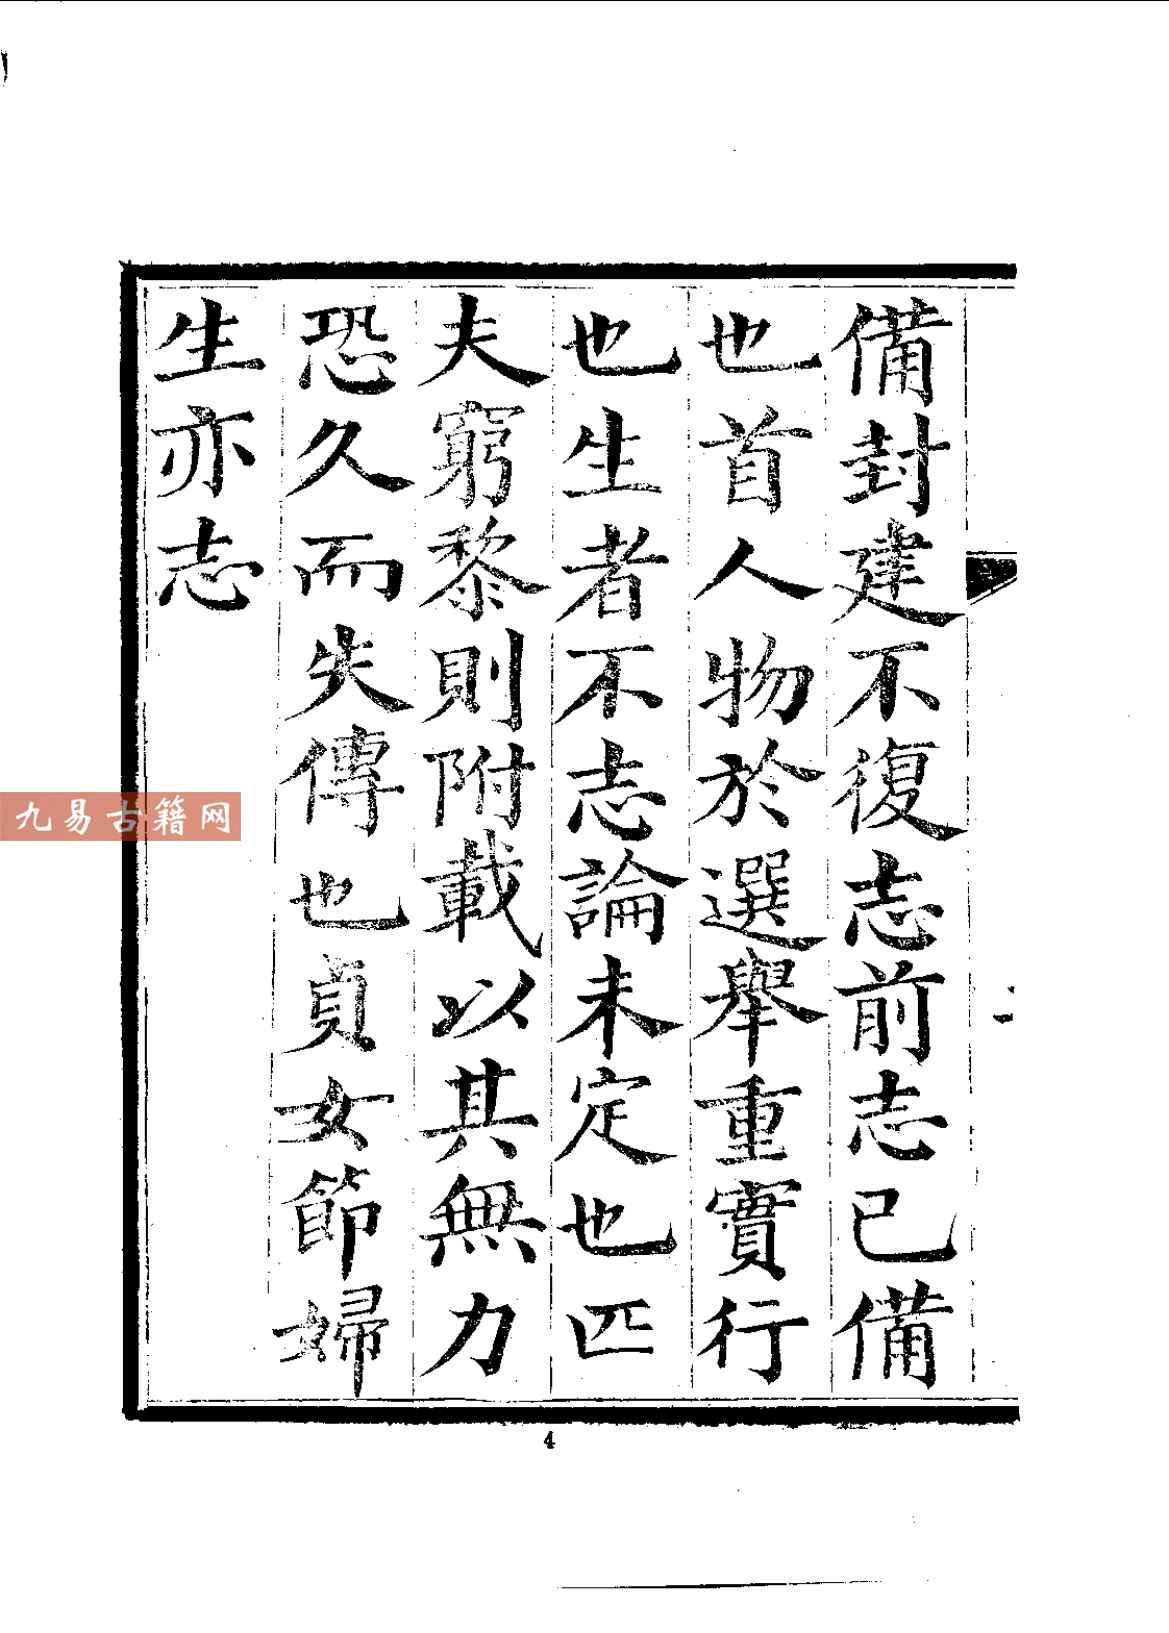 備封建不復志前志已備
也首人物於選舉重實行
也生者不志論未定也匹
夫窮黎則附載以其無力
恐久而失傳也貞女節婦
生亦志
二
九易古籍网
4